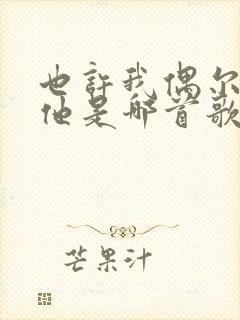 也许我偶尔
他是哪首歌
芒果汁